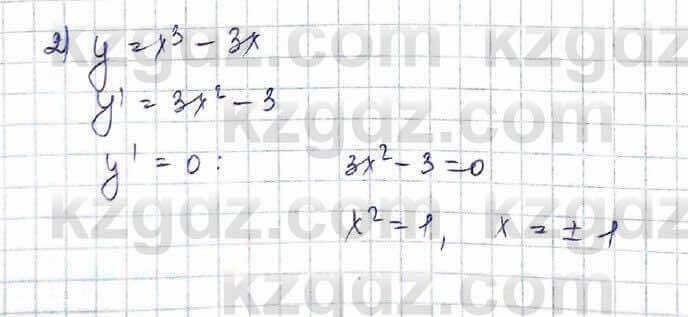 2) y = x³ − 3x
y' = 3x² − 3
y' = 0 : 3x² − 3 = 0
x² = 1, x = ± 1
kzgdz.com kzgdz.com
kzgdz.com
kzgdz.com kzgdz.com
kzgdz.com